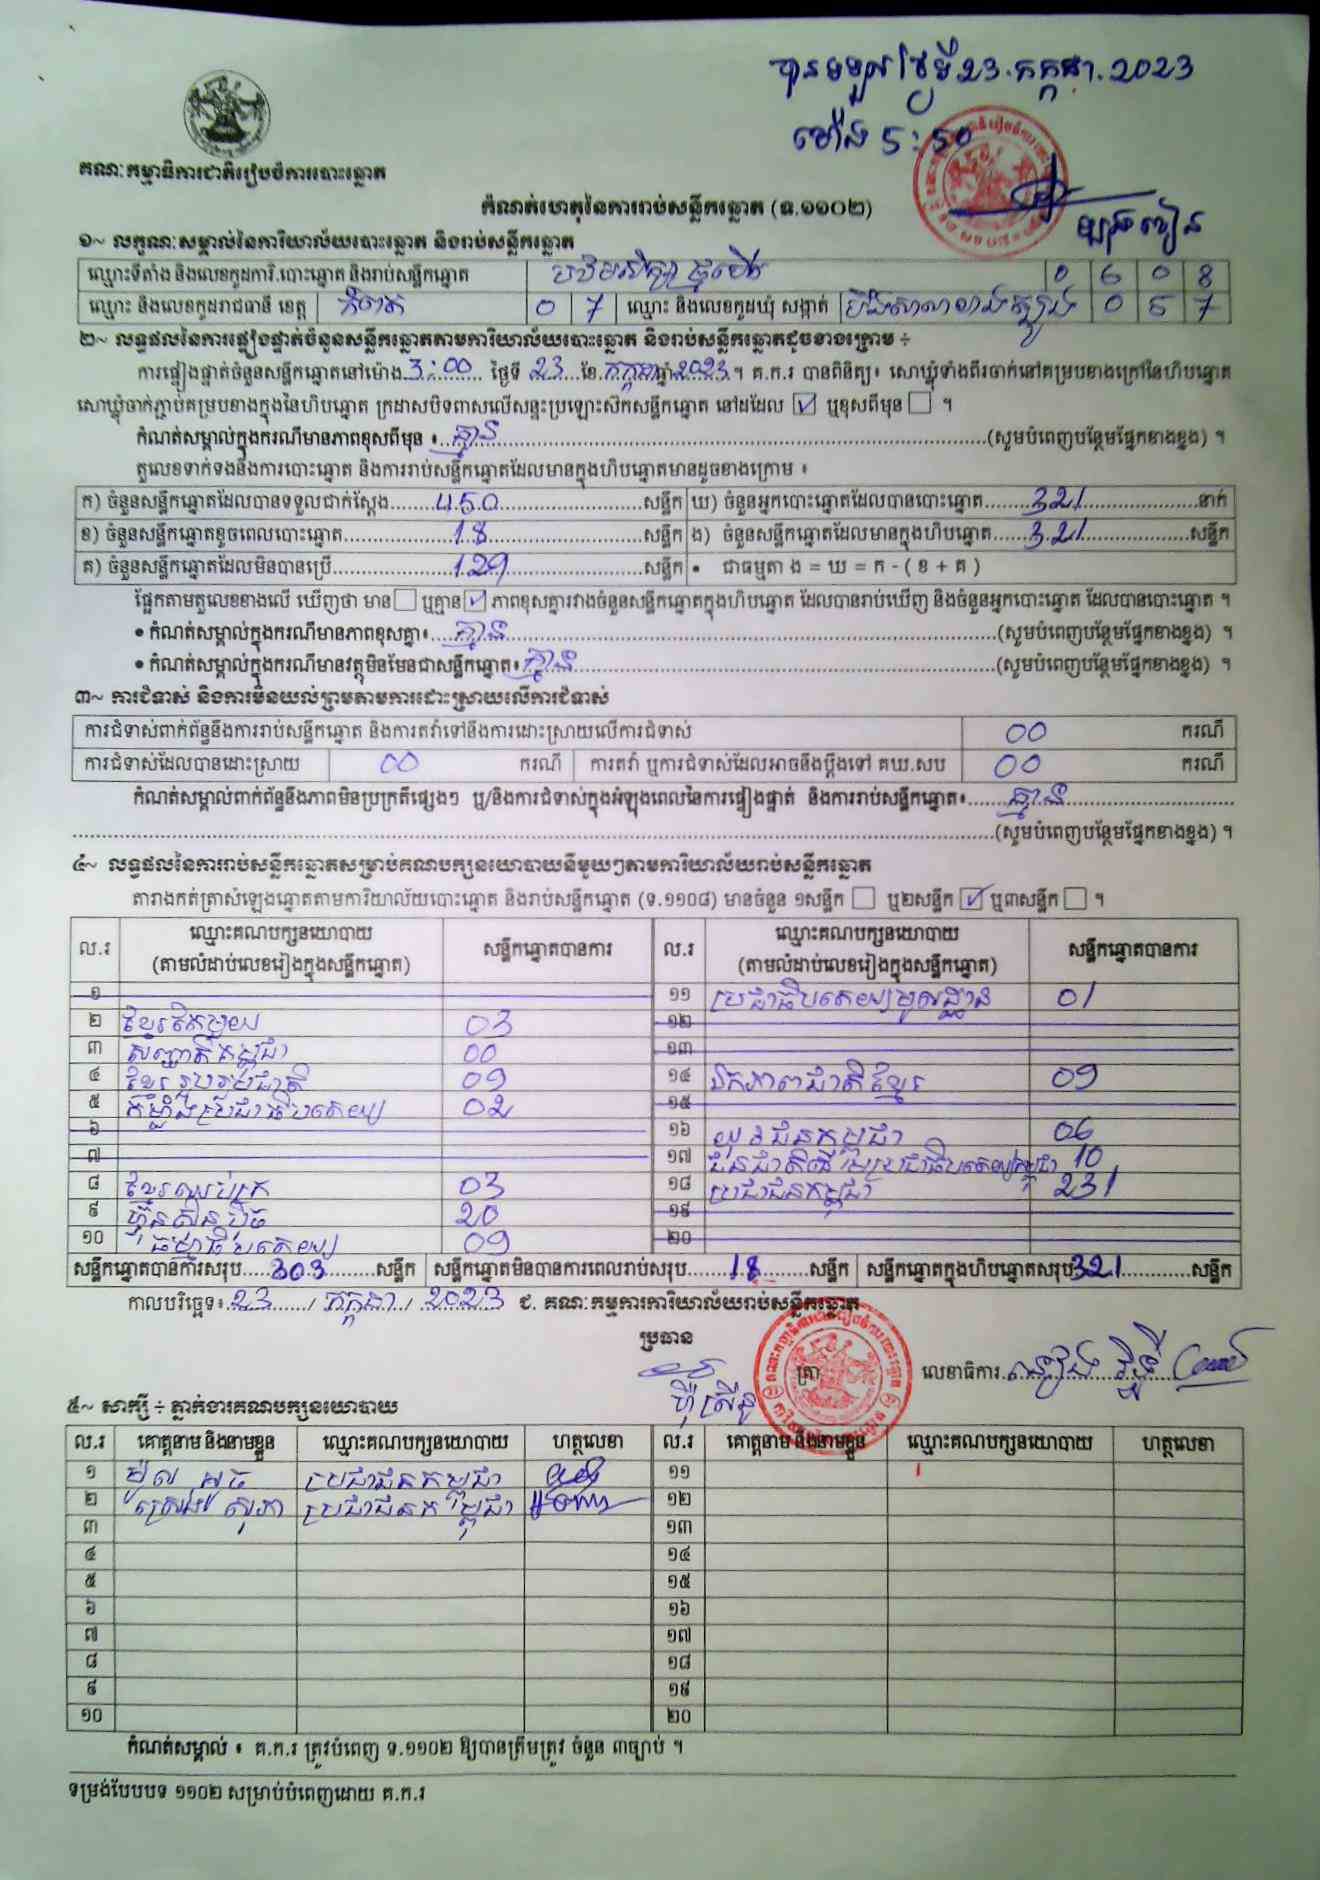 បានទទួលថ្ងៃទី២៣.កក្កដា.2023
ម៉ោង 5:50
គណៈកម្មាធិការជាតិរៀបចំការបោះឆ្នោត
កំណត់ហេតុនៃការរាប់សន្លឹកឆ្នោត (ទ.១១០២)
១~ លក្ខណៈសម្គាល់នៃការិយាល័យបោះឆ្នោត និងរាប់សន្លឹកឆ្នោត
ឈ្មោះទីតាំង និងលេខកូដការិ.បោះឆ្នោត និងរាប់សន្លឹកឆ្នោត 0 6 0 8
ឈ្មោះ និងលេខកូដរាជធានី ខេត្ត កំពត 0 7 ឈ្មោះ និងលេខកូដឃុំ សង្កាត់ បឹងសាលាខាងត្បូង 0 5 7
២~ លទ្ធផលនៃការផ្ទៀងផ្ទាត់ចំនួនសន្លឹកឆ្នោតតាមការិយាល័យបោះឆ្នោត និងរាប់សន្លឹកឆ្នោតដូចខាងក្រោម ÷
ការផ្ទៀងផ្ទាត់ចំនួនសន្លឹកឆ្នោតនៅម៉ោង 3:00 ថ្ងៃទី 23 ខែ កក្កដា ឆ្នាំ 2023 ។ គ.ក.រ បានពិនិត្យ៖ សោឃ្លុំទាំងពីរចាក់នៅគម្របខាងក្រៅនៃហិបឆ្នោត
សោឃ្លុំចាក់ភ្ជាប់គម្របខាងក្នុងនៃហិបឆ្នោត ក្រដាសបិទពាសលើសន្ទះប្រឡោះសឹកសន្លឹកឆ្នោត នៅដដែល ☑ ឬខុសពីមុន ☐ ។
កំណត់សម្គាល់ក្នុងករណីមានភាពខុសពីមុន ៖ គ្មាន (សូមបំពេញបន្ថែមផ្នែកខាងខ្នង) ។
តួលេខទាក់ទងនឹងការបោះឆ្នោត និងការរាប់សន្លឹកឆ្នោតដែលមានក្នុងហិបឆ្នោតមានដូចខាងក្រោម ៖
ក) ចំនួនសន្លឹកឆ្នោតដែលបានទទួលជាក់ស្តែង 450 សន្លឹក ឃ) ចំនួនអ្នកបោះឆ្នោតដែលបានបោះឆ្នោត 321 នាក់
ខ) ចំនួនសន្លឹកឆ្នោតខូចពេលបោះឆ្នោត សន្លឹក ង) ចំនួនសន្លឹកឆ្នោតដែលមានក្នុងហិបឆ្នោត 321 សន្លឹក
គ) ចំនួនសន្លឹកឆ្នោតដែលមិនបានប្រើ 129 សន្លឹក • ជាធម្មតា ង = ឃ = ក - ( ខ + គ )
ផ្អែកតាមតួលេខខាងលើ ឃើញថា មាន ☐ ឬគ្មាន ☑ ភាពខុសគ្នារវាងចំនួនសន្លឹកឆ្នោតក្នុងហិបឆ្នោត ដែលបានរាប់ឃើញ និងចំនួនអ្នកបោះឆ្នោត ដែលបានបោះឆ្នោត ។
• កំណត់សម្គាល់ក្នុងករណីមានភាពខុសគ្នា៖ គ្មាន (សូមបំពេញបន្ថែមផ្នែកខាងខ្នង) ។
• កំណត់សម្គាល់ក្នុងករណីមានវត្ថុមិនមែនជាសន្លឹកឆ្នោត៖ គ្មាន (សូមបំពេញបន្ថែមផ្នែកខាងខ្នង) ។
៣~ ការជំទាស់ និងការមិនយល់ព្រមតាមការដោះស្រាយលើការជំទាស់
ការជំទាស់ពាក់ព័ន្ធនឹងការរាប់សន្លឹកឆ្នោត និងការតវ៉ាទៅនឹងការដោះស្រាយលើការជំទាស់ 00 ករណី
ការជំទាស់ដែលបានដោះស្រាយ 00 ករណី ការតវ៉ា ឬការជំទាស់ដែលអាចនឹងប្តឹងទៅ គឃ.សប 00 ករណី
កំណត់សម្គាល់ពាក់ព័ន្ធនឹងភាពមិនប្រក្រតីផ្សេងៗ ឬ/និងការជំទាស់ក្នុងអំឡុងពេលនៃការផ្ទៀងផ្ទាត់ និងការរាប់សន្លឹកឆ្នោត៖ គ្មាន
(សូមបំពេញបន្ថែមផ្នែកខាងខ្នង) ។
៤~ លទ្ធផលនៃការរាប់សន្លឹកឆ្នោតសម្រាប់គណបក្សនយោបាយនីមួយៗតាមការិយាល័យរាប់សន្លឹកឆ្នោត
តារាងកត់ត្រាសំឡេងឆ្នោតតាមការិយាល័យបោះឆ្នោត និងរាប់សន្លឹកឆ្នោត (ទ.១១០៨) មានចំនួន ១សន្លឹក ☐ ឬ២សន្លឹក ☑ ឬ៣សន្លឹក ☐ ។
ល.រ ឈ្មោះគណបក្សនយោបាយ (តាមលំដាប់លេខរៀងក្នុងសន្លឹកឆ្នោត) សន្លឹកឆ្នោតបានការ ល.រ ឈ្មោះគណបក្សនយោបាយ (តាមលំដាប់លេខរៀងក្នុងសន្លឹកឆ្នោត) សន្លឹកឆ្នោតបានការ
១ ១១ ប្រជាធិបតេយ្យមូលដ្ឋាន 01
២ ខ្មែរតែមួយ 03 ១២
៣ សញ្ជាតិកម្ពុជា 00 ១៣
៤ ខ្មែររួបរួមជាតិ 09 ១៤ ឯកភាពជាតិខ្មែរ 09
៥ កម្លាំងប្រជាធិបតេយ្យ 02 ១៥
៦ ១៦ យុវជនកម្ពុជា 06
៧ ១៧ ជនជាតិដើមប្រជាធិបតេយ្យកម្ពុជា 10
៨ ខ្មែរឈប់ក្រ 03 ១៨ ប្រជាជនកម្ពុជា 231
៩ ហ្វ៊ុនស៊ិនប៉ិច 20 ១៩
១០ ធម្មាធិបតេយ្យ 09 ២០
សន្លឹកឆ្នោតបានការសរុប 303 សន្លឹក សន្លឹកឆ្នោតមិនបានការពេលរាប់សរុប 18 សន្លឹក សន្លឹកឆ្នោតក្នុងហិបឆ្នោតសរុប 321 សន្លឹក
កាលបរិច្ឆេទ៖ 23 / កក្កដា / 2023 ជ. គណៈកម្មការការិយាល័យរាប់សន្លឹកឆ្នោត
ប្រធាន
ត្រា លេខាធិការ
៥~ សាក្សី ÷ ភ្នាក់ងារគណបក្សនយោបាយ
ល.រ គោត្តនាម និងនាមខ្លួន ឈ្មោះគណបក្សនយោបាយ ហត្ថលេខា ល.រ គោត្តនាម និងនាមខ្លួន ឈ្មោះគណបក្សនយោបាយ ហត្ថលេខា
១ ប្រជាជនកម្ពុជា ១១
២ សុភា ប្រជាជនកម្ពុជា ១២
៣ ១៣
៤ ១៤
៥ ១៥
៦ ១៦
៧ ១៧
៨ ១៨
៩ ១៩
១០ ២០
កំណត់សម្គាល់ ៖ គ.ក.រ ត្រូវបំពេញ ទ.១១០២ ឱ្យបានត្រឹមត្រូវ ចំនួន ៣ច្បាប់ ។
ទម្រង់បែបបទ ១១០២ សម្រាប់បំពេញដោយ គ.ក.រ